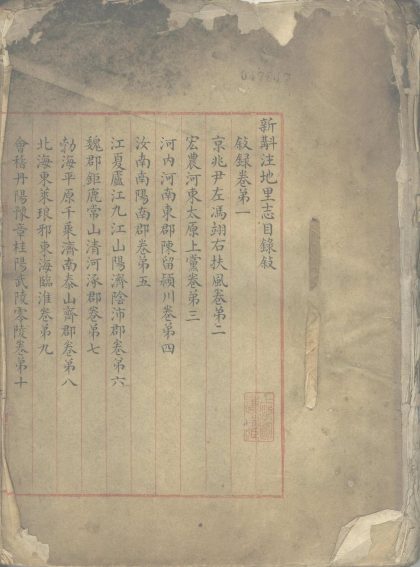 新斠注地里志目錄敍
敍録卷第一
京兆尹左馮翊右扶風卷第二
宏農河東太原上黨卷第三
河内河南東郡陳留潁川卷第四
汝南南陽南郡卷第五
江夏廬江九江山陽濟陰沛郡卷第六
魏郡鉅鹿常山清河涿郡卷第七
勃海平原千乘濟南泰山齊郡卷第八
北海東萊琅邪東海臨淮卷第九
會稽丹陽豫章桂陽武陵零陵卷第十